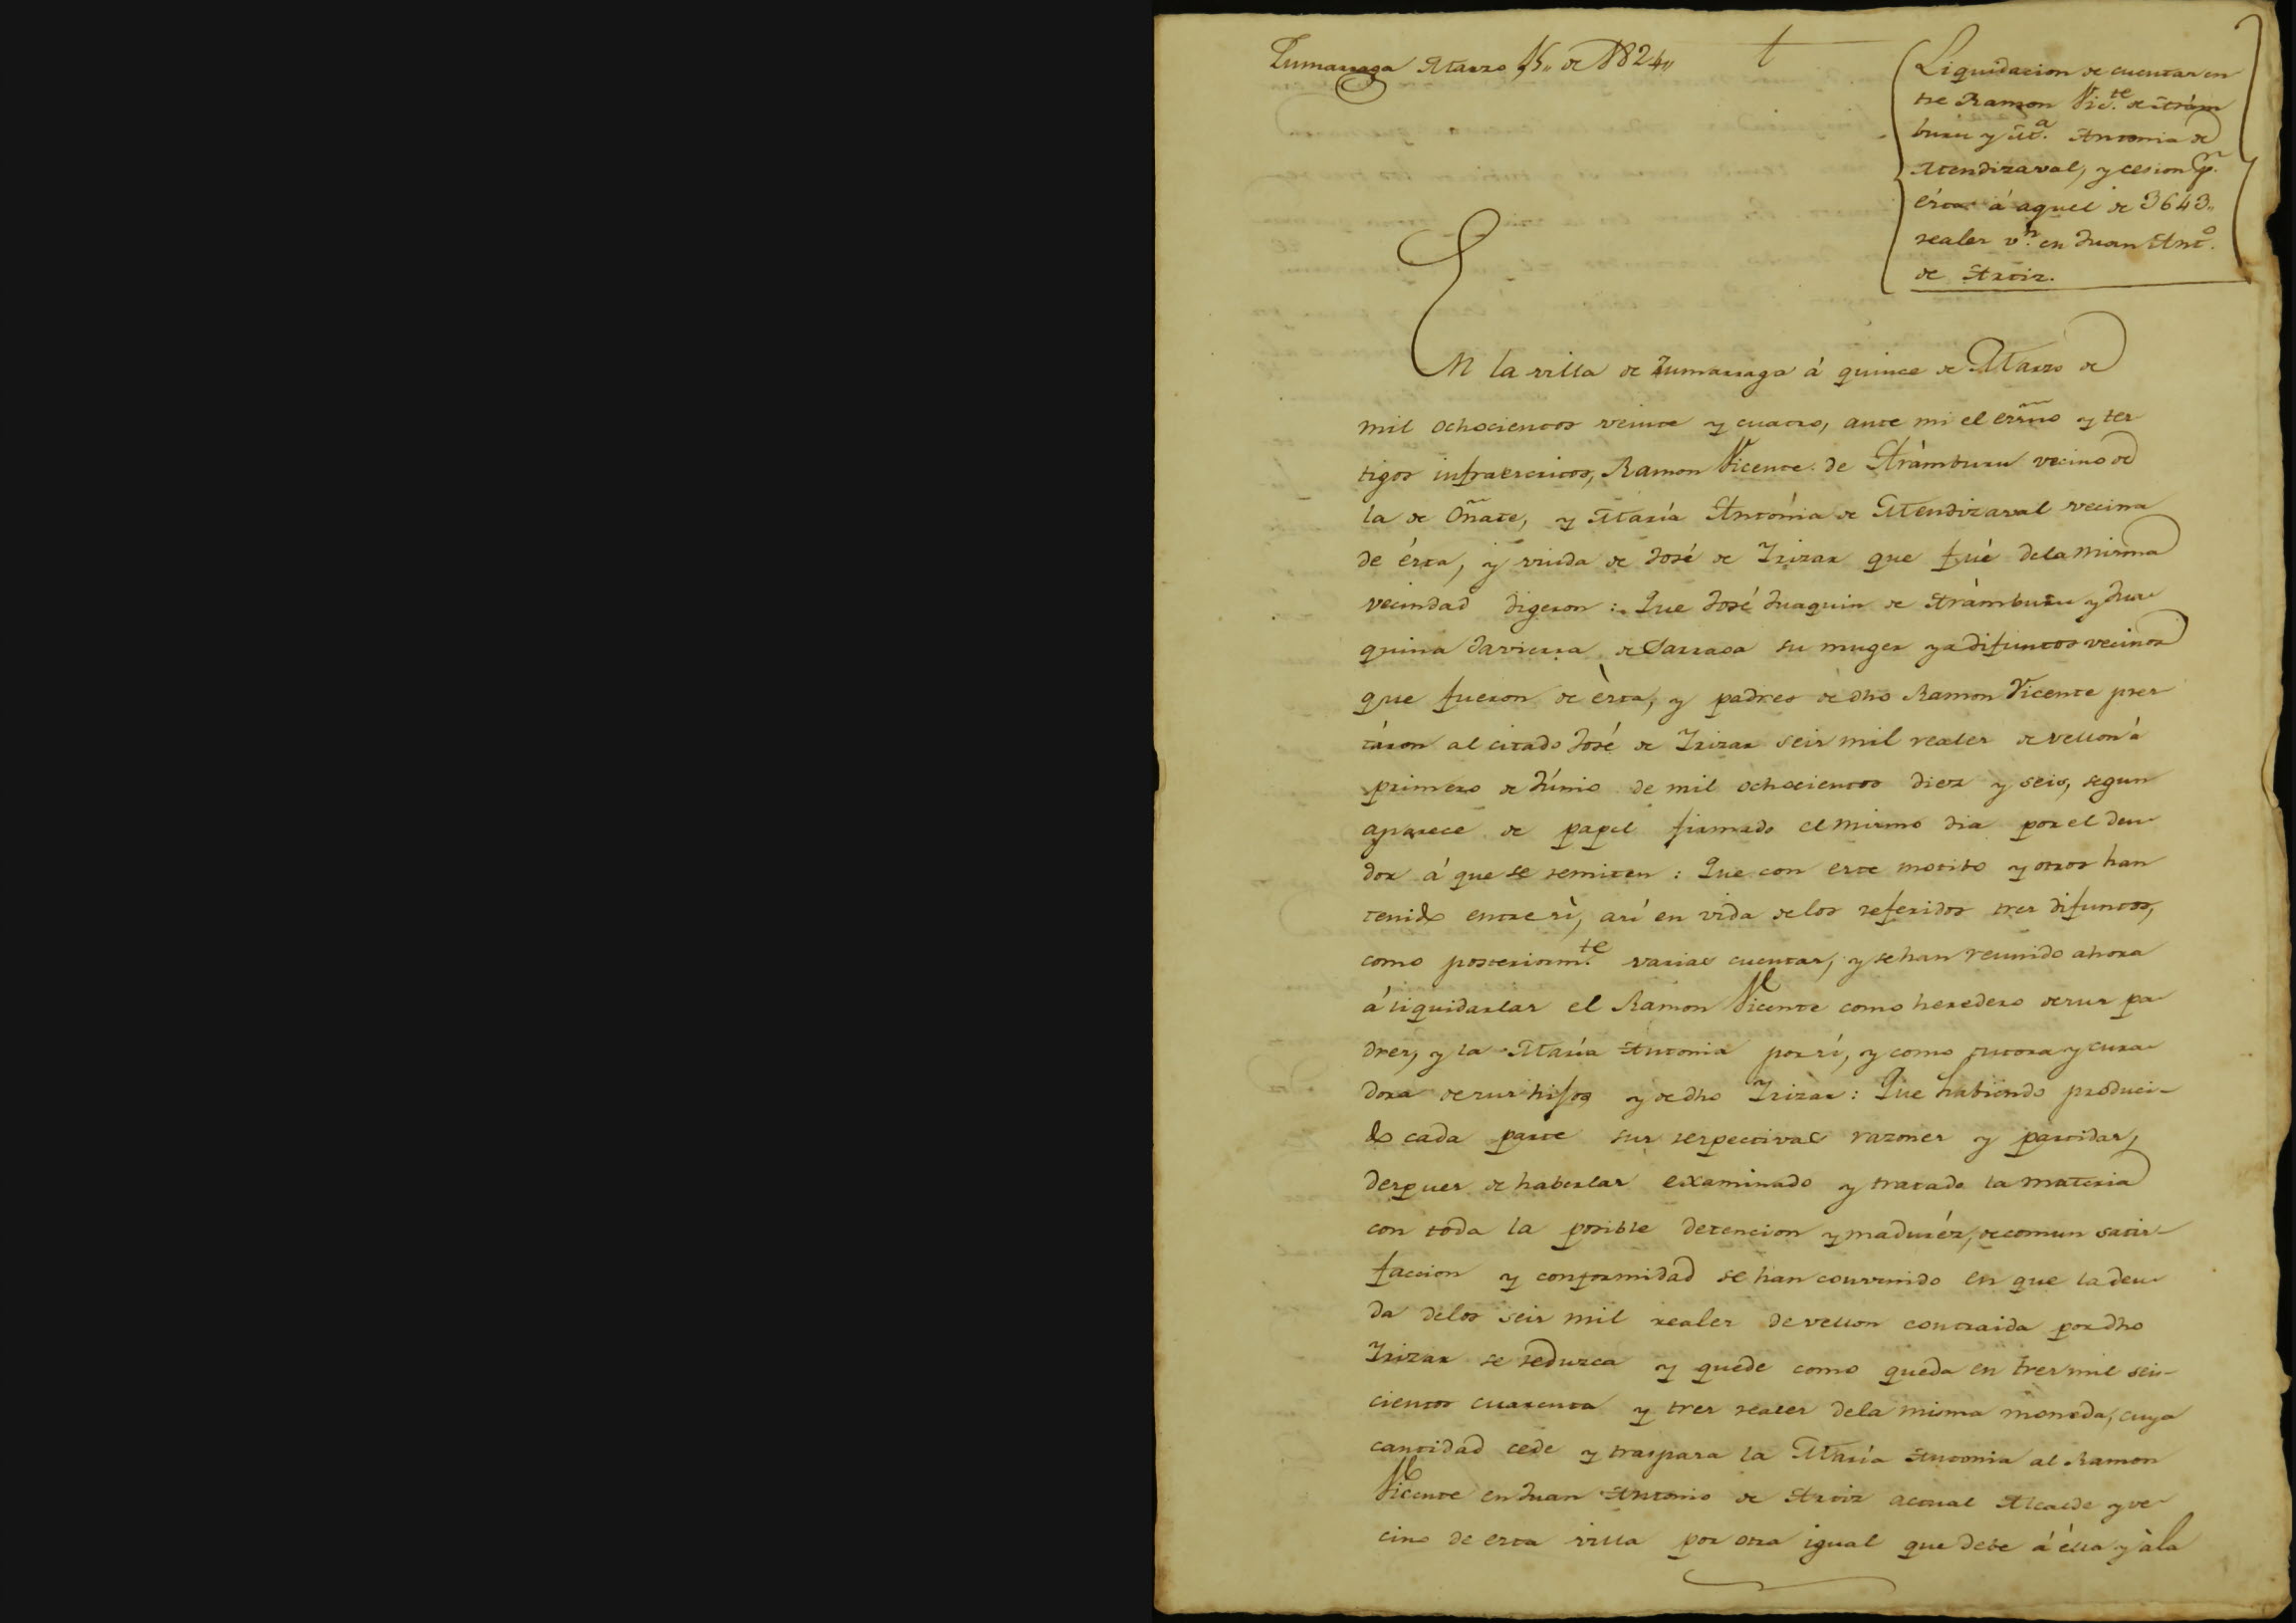 Zumarraga Marzo 15,, de 1824,,
Liquidacion de cuentas en
tre Ramon Vic.te de Arám
buru y M.a Antonia de
Mendizaval, y cesion p.r
ésta á aquel de 3643,,
reales v.n en Juan Ant.o
de Artiz.
En la villa de Zumarraga á quince de Marzo de
mil ochocientos veinte y cuatro, ante mi el essño y tes
tigos infraescritos, Ramon Vicente de Arámburu vecino de
la de Oñate, y María Antónia de Mendizaval vecina
de ésta, y viuda de José de Yrizar que fué dela misma
vecindad digeron: Que José Juaquin de Arámburu y Jua
quina Javierra de Sarrasa su muger ya difuntos vecinos
que fueron de ésta, y padres de dho Ramon Vicente pres
táron al citado José de Yrizar seis mil reales de vellon á
primero de Júnio de mil ochocientos diez y seis, segun
aparece de papel firmado el mismo dia por el deu
dor á que se remiten: Que con este motibo y otros han
tenido entre sì, así en vida delos referidos tres difuntos,
como posteriorm.te varias cuentas, y se han reunido ahora
á liquidarlas el Ramon Vicente como heredero de sus pa
dres, y la María Antonia por sí, y como tutora y cura
dora de sus hijos y de dho Yrizar: Que habiendo produci-
do cada parte sus respectivas razones y partidas,
despues de haberlas examinado y tratado la materia
con toda la posible detencion y maduréz, de comun satis-
faccion y conformidad se han convenido en que la deu
da delos seis mil reales de vellon contraida por dho
Yrizar se reduzca y quede como queda en tres mil seis-
cientos cuarenta y tres reales dela misma moneda, cuya
cantidad cede y traspasa la María Antonia al Ramon
Vicente en Juan Antonio de Artiz actual Alcalde y ve
cino de esta villa por otra igual que debe á élla y à la